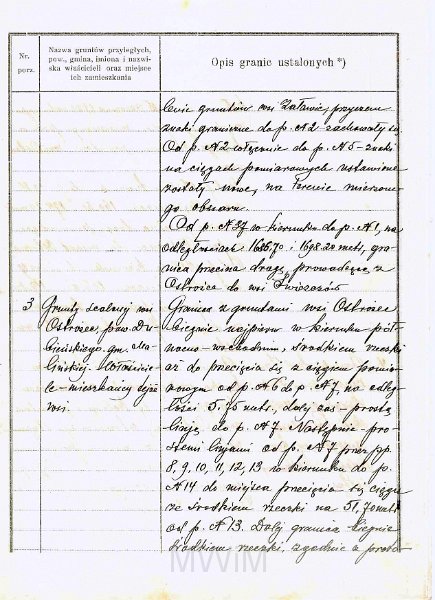 Nr.
porz.
Nazwa gruntów przyległych,
pow., gmina, imiona i nazwi-
ska właścicieli oraz miejsce
ich zamieszkania
Opis granic ustalonych *)
gruntów wsi Załawie, przyczem
znaki graniczne do p. A2 zachowały się.
Od p. A2 włącznie do p. A5 - znaki
na ciągach pomiarowych ustawione
zostały nowe, na terenie mierzone-
go obszaru.
Od p. A37 w kierunku do p. A1, na
odległościach 1686.70 i 1698.20 mets, gra-
nica przecina drogę, prowadzącą z
Ostrowca do wsi
3
Grunty scalonej wsi
Ostrowiec, pow. Du-
bieńskiego, gm.
- właściciele
- mieszkańcy tejże
wsi.
Granica z gruntami wsi Ostrowiec
biegnie najpierw w kierunku pół-
nocno-wschodnim, środkiem rzeczki
aż do przecięcia się z ciągiem pomia-
rowym od p. A6 do p. A7, na odle-
głości 5.75 mets, dalej zaś - prostą
linją do p. A7. Następnie pro-
stemi linjami od p. A7 przez pp.
8, 9, 10, 11, 12, 13 w kierunku do p.
A14 do miejsca przecięcia się ciągu
ze środkiem rzeczki na 51,70 mets
od p. A13. Dalej granica biegnie
środkiem rzeczki, zgodnie z
MWIM